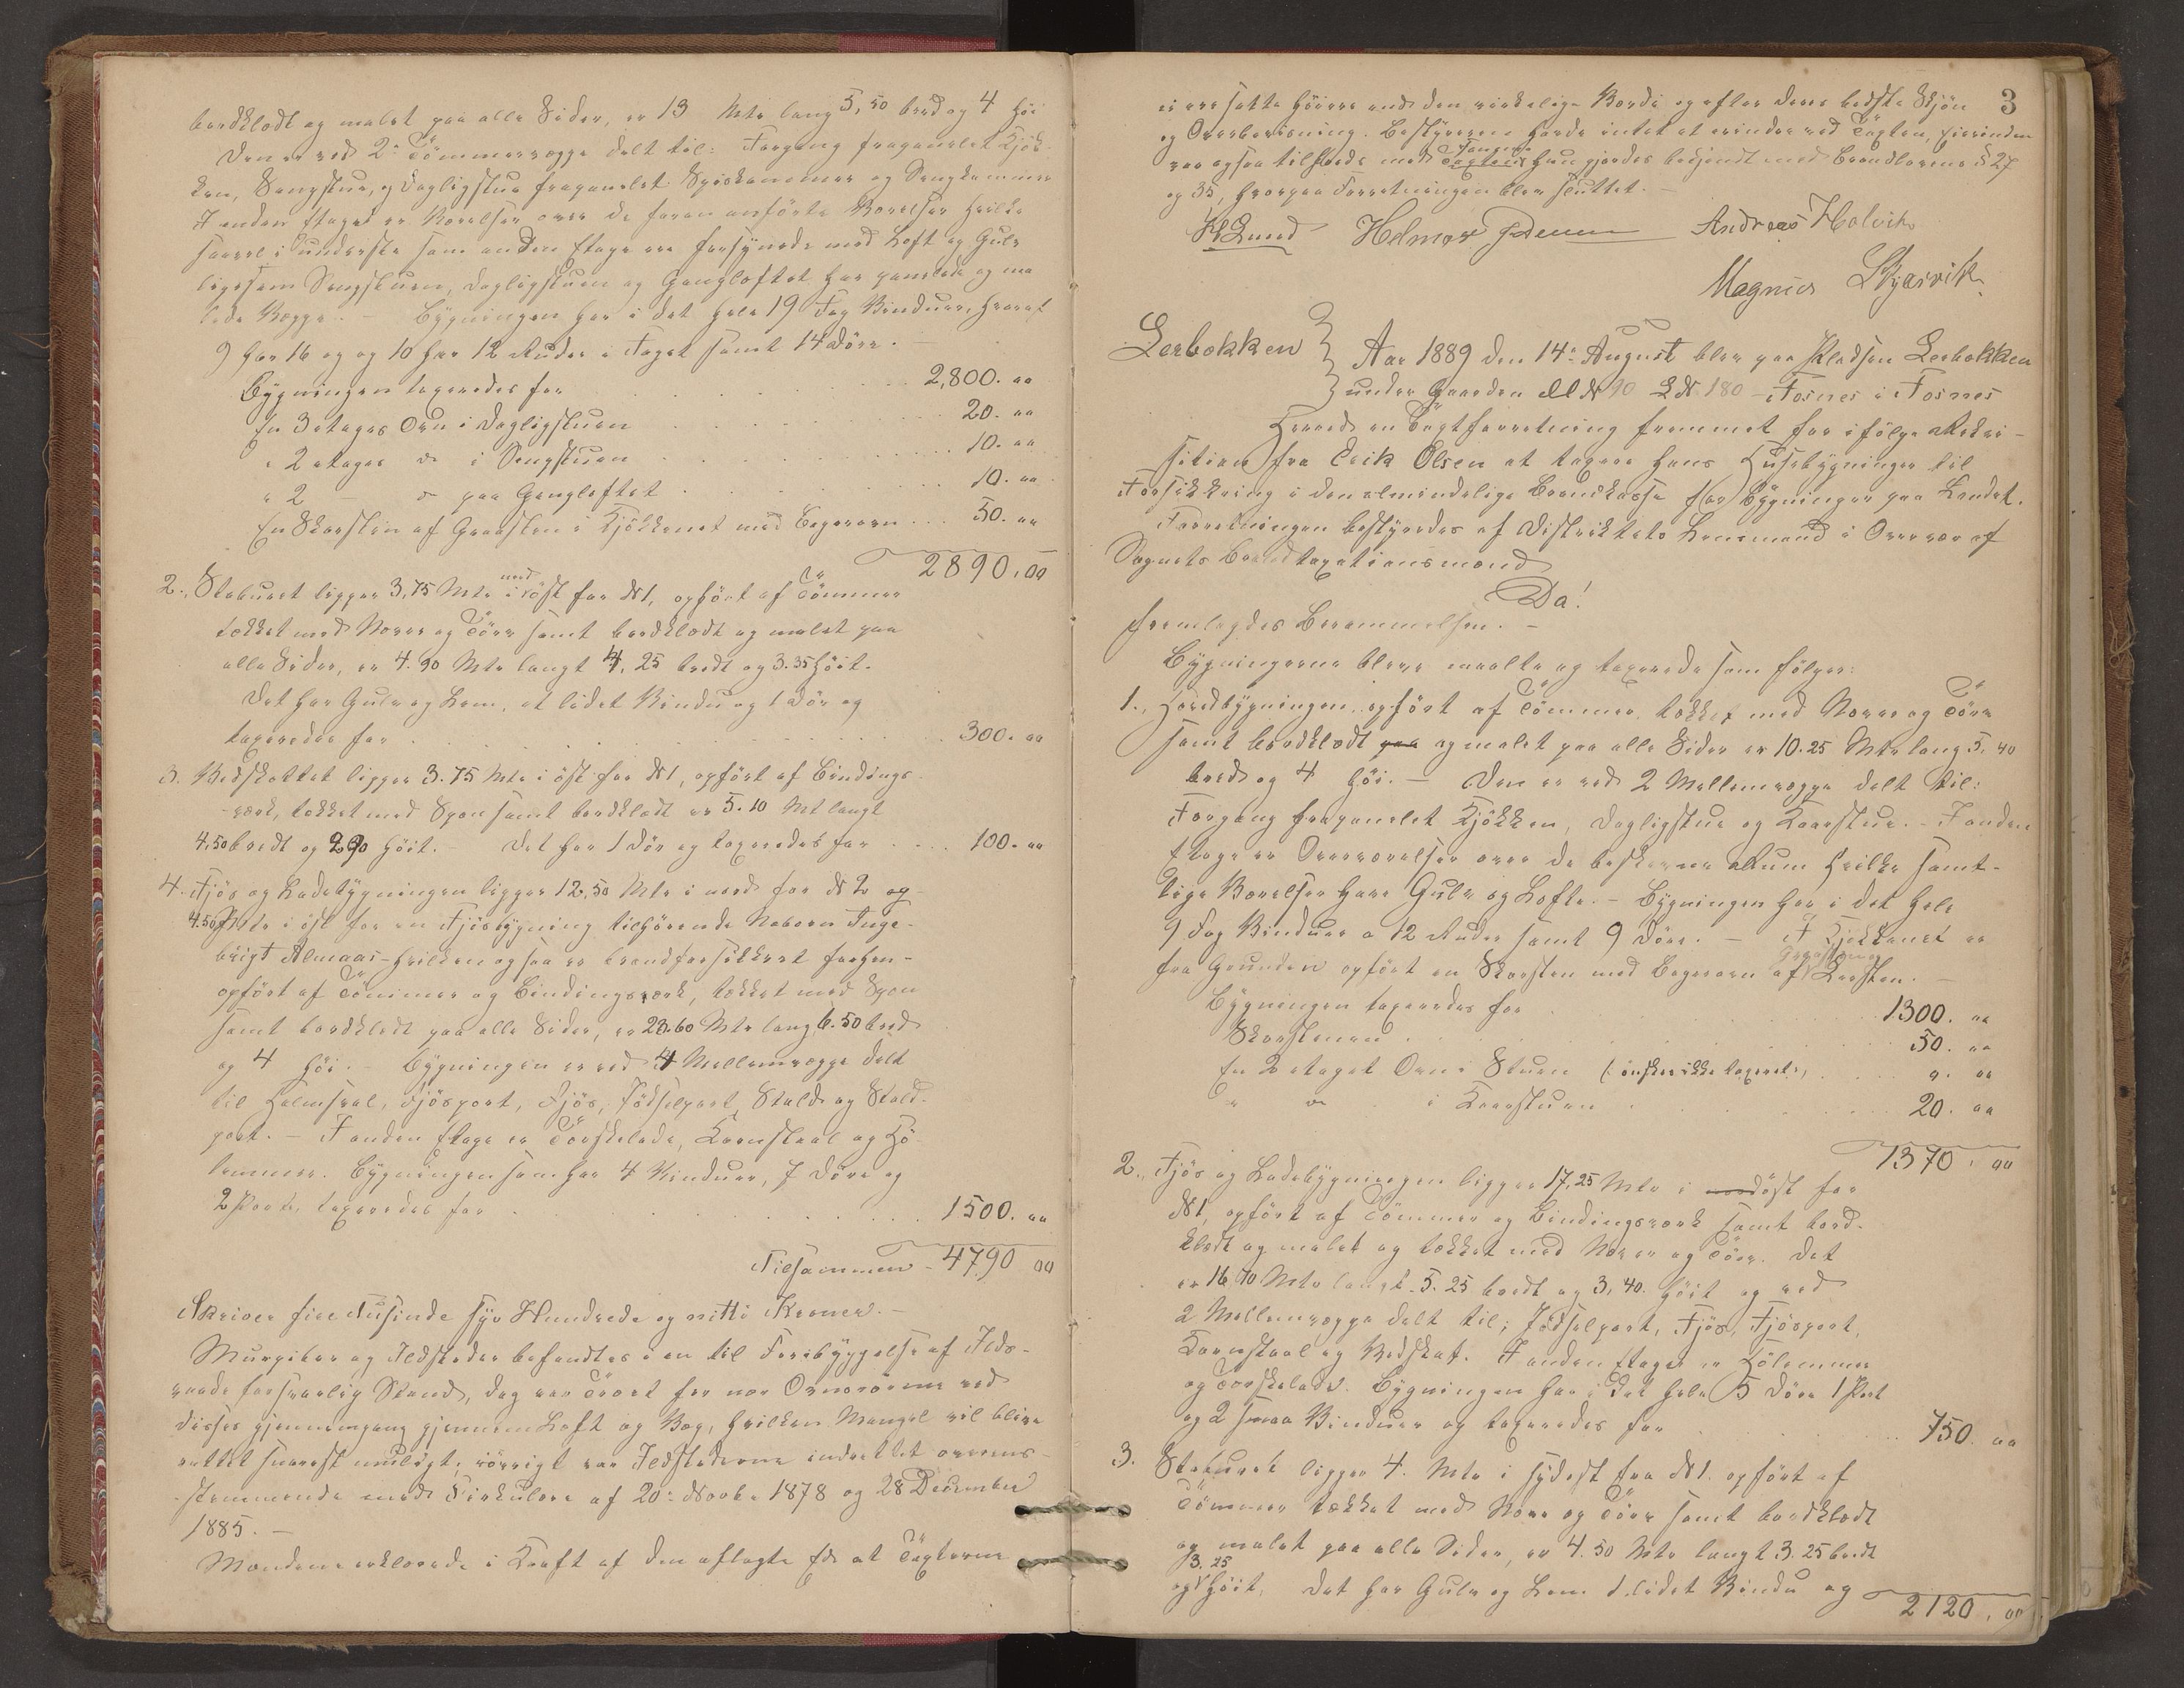 bordklædt og malet paa alle Sider, er 13 Mtr lang 5,50 bred og 4 høi
Den er ved 2 Tømmervægge delt til: Forgang fraganelet Kjøk-
ken, Sengstue, og Dagligstue frapanelet Spiskammer og Sengkammer
I anden Etage er Værelser over de foran anførte Værelser hvilke
saavel i underste som anden Etage ere forsynede med Loft og Gulv
ligesom Sengstuen, Dagligstuen og Gangloftet har panelede og ma
lede Vægge. — Bygningen har i det hele 19 Fag Vinduer, hvoraf
9 har 16 og og 10 har 12 Ruder i Faget samt 14 Døre.
Bygningen taxeredes for 2,800. 00
En 3 etages Ovn i Dagligstuen 20. 00
" 2 etages do i Sengstuen 10. 00
" 2 — do paa Gangloftet 10. 00
En Skorsten af Graasten i Kjøkkenet med Bagerovn 50. 00
2890,00
2., Staburet ligger 3,75 Mtr i nordøst for N 1, opført af Tømmer
tækket med Næver og Törv samt bordklædt og malet paa
alle Sider, er 4.90 Mtr langt 4,25 bredt og 3.35 høit.
Det har Gulv og Lem, et lidet Vindu og 1 Dör og
taxeredes for 300. 00
3. Vedskottet ligger 3.75 Mtr i øst for N 1, opført af Bindings-
værk, tækket med Spon samt bordklædt er 5.10 Mt langt
4,50 bredt og 2.90 høit. — Det har 1 Dör og taxeredes for 100. 00
4. Fjös og Ladebygningen ligger 12,50 Mtr i nord for N 2 og
4.50 Mtr i øst for en Fjösbygning tilhørende Naboen Inge-
brigt Almaas - hvilken ogsaa er brandforsikkret
opført af Tömmer og Bindingsværk, tækket med Spon
samt bordklædt paa alle Sider, er 23.60 Mtr lang 6.50 bred
og 4 høi. — Bygningen er ved 4 Mellemvægge delt
til Halmsval, Fjösport, Fjös, Födselport, Stald og Stald-
port. — I anden Etage er Törskelade, Kornstaal og Hö-
lemmer. Bygningen som har 4 Vinduer, 7 Döre og
2 Porte, taxeredes for 1500. 00
Tilsammen - 4790 00
Skriver fire Tusinde syv Hundrede og nitti Kroner. —
Murpiber og Ildsteder befandtes i en til Forebyggelse af Ilds-
vaade forsvarlig Stand, dog var Træet for nær Ovnsrørene ved
disses gjennemgang gjennem Loft og Væg, hvilken Mangel vil blive
rettet snarest muligt; iövrigt var Ildstederne indrettet overens-
stemmende med Cirkulære af 20 Novbr 1878 og 28 December
1885. —
Mændene erklærede i Kraft af den aflagte Ed at Taxterne
3
ei ere satte høiere end den virkelige Værdi og efter deres bedste Skjön
og Overbevisning. Bestyreren havde intet at erindre ved Taxten, Eierinden
var ogsaa tilfreds med Taxten hun gjordes bekjendt med Brandlovens § 27
og 35, hvorpaa Forretningen blev sluttet. —
Lund Helmer Andreas Holvik
Magnus Skjærvik
Lerbakken
Aar 1889 den 14 August blev paa Pladsen Lerbakken
under Gaarden M N 90 L N 180 - Fosnes i Fosnes
Herred en Taxtforretning fremmet for ifølge Rekvi-
sition fra Erik Olsen at taxere hans Husebygninger til
Forsikkring i den almindelige Brandkasse for Bygninger paa Landet.
Forretningen bestyredes af Distriktets Lensmand i Overvær af
Sognets Brandtaxationsmænd
Da!
fremlagdes Berammelsen. —
Bygningerne bleve maalte og taxerede som følger:
1., Hovedbygningen, opført af Tömmer, tækket med Næver og Törv
samt bordklædt paa og malet paa alle Sider er 10.25 Mtr lang 5,40
bred og 4 høi. — Den er ved 2 Mellemvægge delt til:
Forgang frapanelet Kjøkken, Dagligstue og Kaarstue. — I anden
Etage er Overværelser over de beskrevne Rum hvilke samt-
lige Værelser have Gulv og Lofte. — Bygningen har i det hele
9 Fag Vinduer a 12 Ruder samt 9 Döre. — I Kjøkkenet er
fra Grunden opført en Skorsten med Bagerovn af
Bygningen taxeredes for 1300. 00
Skorstenen 50. 00
En 2 etages Ovn i Stuen (: önskes ikke taxeret:) ". 00
" do i Kaarstuen 20. 00
1370, 00
2., Fjös og Ladebygningen ligger 17,25 Mtr i nordøst for
N 1, opført af Tömmer og Bindingsværk samt bord-
klædt og malet og tækket med Næver og Törv. Det
er 16,70 Mtr langt. 5.25 bredt og 3,40. høit og ved
2 Mellemvægge delt til; Födselport, Fjös, Fjösport,
Kornstaal og Vedskot. I anden Etage er Hölemmer
og Törskelade. Bygningen har i det hele 5 Döre 1 Port
og 2 smaa Vinduer og taxeredes for 750. 00
3. Staburet ligger 4. Mtr i sydøst fra N 1. opført af
Tömmer tækket med Næver og Törv samt bordklædt
og malet paa alle Sider, er 4.50 Mtr langt 3.25 bredt
og 3.25 høit, Det har Gulv og Lem 1 lidet Vindu og
2120, 00